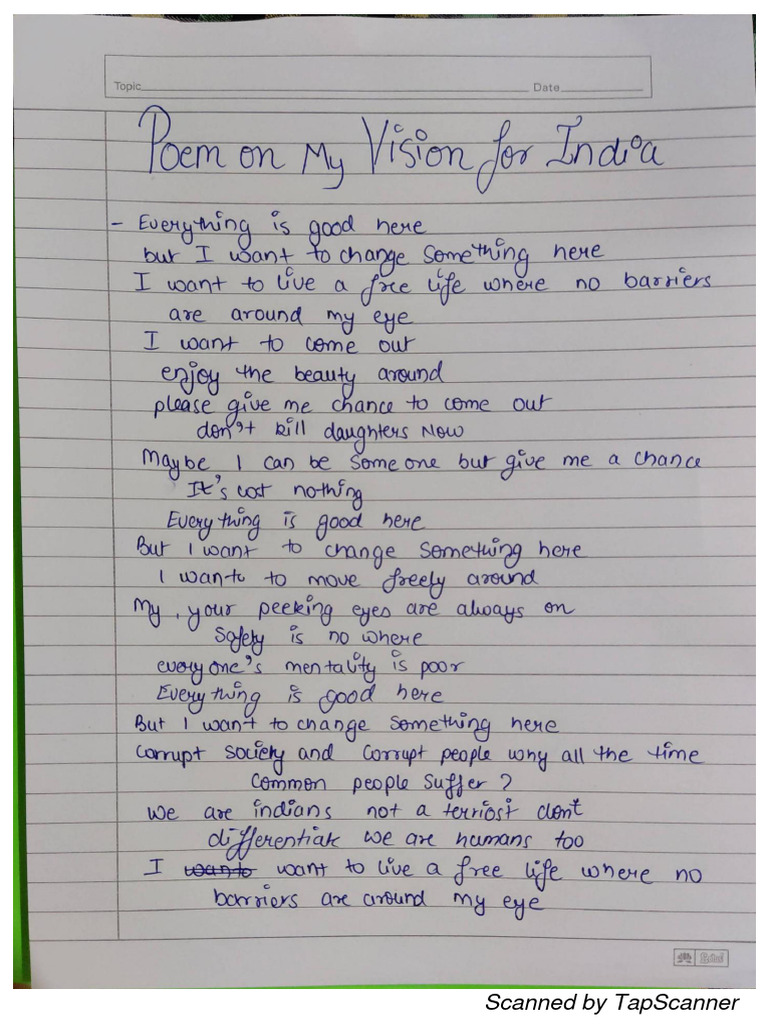 Topic Date
Poem on My Vision for India
- Everything is good here
but I want to change something here
I want to live a free life where no barriers
are around my eye
I want to come out
enjoy the beauty around
please give me chance to come out
don't kill daughters Now
Maybe I can be some one but give me a chance
It's cost nothing
Every thing is good here
But I want to change something here
I want to move freely around
My, your peeking eyes are always on
Safety is no where
every one's mentality is poor
Every thing is good here
But I want to change something here
Corrupt society and corrupt people why all the time
common people suffer ?
We are indians not a terriost dont
differentiate we are humans too
I wanto want to live a free life where no
barriers are around my eye
Scanned by TapScanner